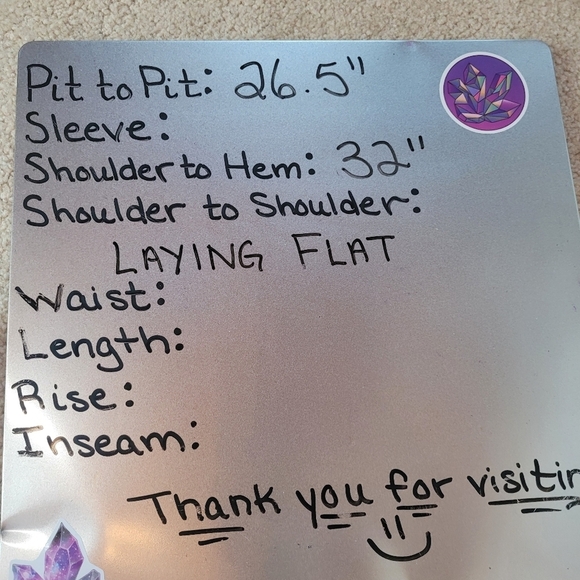 Pit to Pit: 26.5"
Sleeve:
Shoulder to Hem: 32"
Shoulder to Shoulder:
LAYING FLAT
Waist:
Length:
Rise:
Inseam:
Thank you for visitin